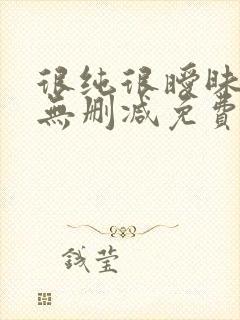 很纯很曖昧
無删减免費
钱莹